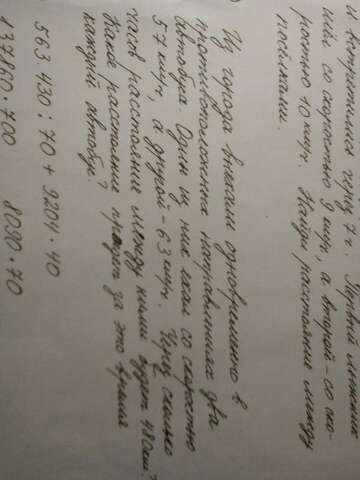 и встретились через 7 ч. Первый лыжник
шёл со скоростью 9 км/ч, а второй – со ско-
ростью 10 км/ч. Найди расстояние между
посёлками.
Из города выехали одновременно в
противоположных направлениях два
автобуса. Один из них ехал со скоростью
57 км/ч, а другой – 63 км/ч. Через сколько
часов расстояние между ними будет 480 км?
Какое расстояние пройдёт за это время
каждый автобус?
563 430 : 70 + 9204 · 40
137860 · 700 8030 · 70